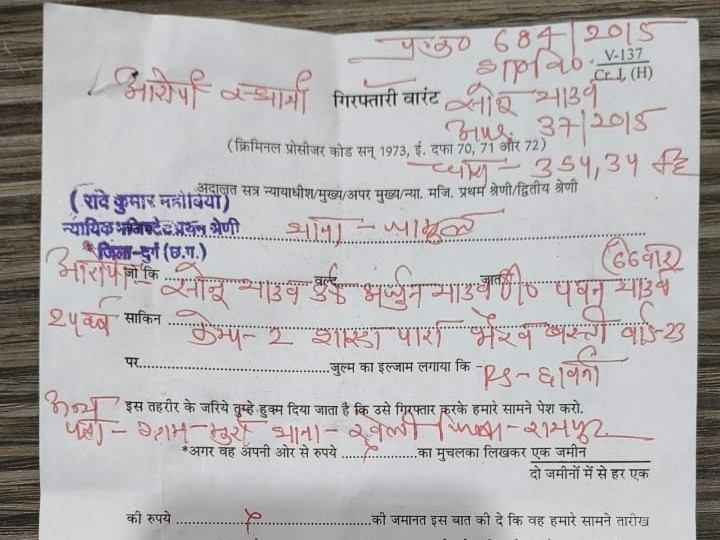 प्र.क्र० 684/2015
V-137
Cr. J, (H)
आरोपी स्थायी गिरफ्तारी वारंट सोनू यादव
अप. 37/2015
(क्रिमिनल प्रोसीजर कोड सन् 1973, ई. दफा 70, 71 और 72)
धारा - 354, 34
अदालत सत्र न्यायाधीश/मुख्य/अपर मुख्य/न्या. मजि. प्रथम श्रेणी/द्वितीय श्रेणी
न्यायिक मजिस्ट्रेट प्रथम श्रेणी
जिला-दुर्ग (छ.ग.)
थाना - जामुल
आरोपी जो कि सोनू यादव उर्फ अर्जुन यादव वल्द पवन यादव जात
24 वर्ष साकिन केम्प-2 शारदा पारा भैरव बस्ती वार्ड-23
पर जुल्म का इल्जाम लगाया कि PS- छावनी
अन्य इस तहरीर के जरिये तुम्हे हुक्म दिया जाता है कि उसे गिरफ्तार करके हमारे सामने पेश करो.
पता - ग्राम-मुर्रा थाना - जिला-रायपुर
*अगर वह अपनी ओर से रुपये का मुचलका लिखकर एक जमीन
दो जमीनों में से हर एक
की रुपये की जमानत इस बात की दे कि वह हमारे सामने तारीख